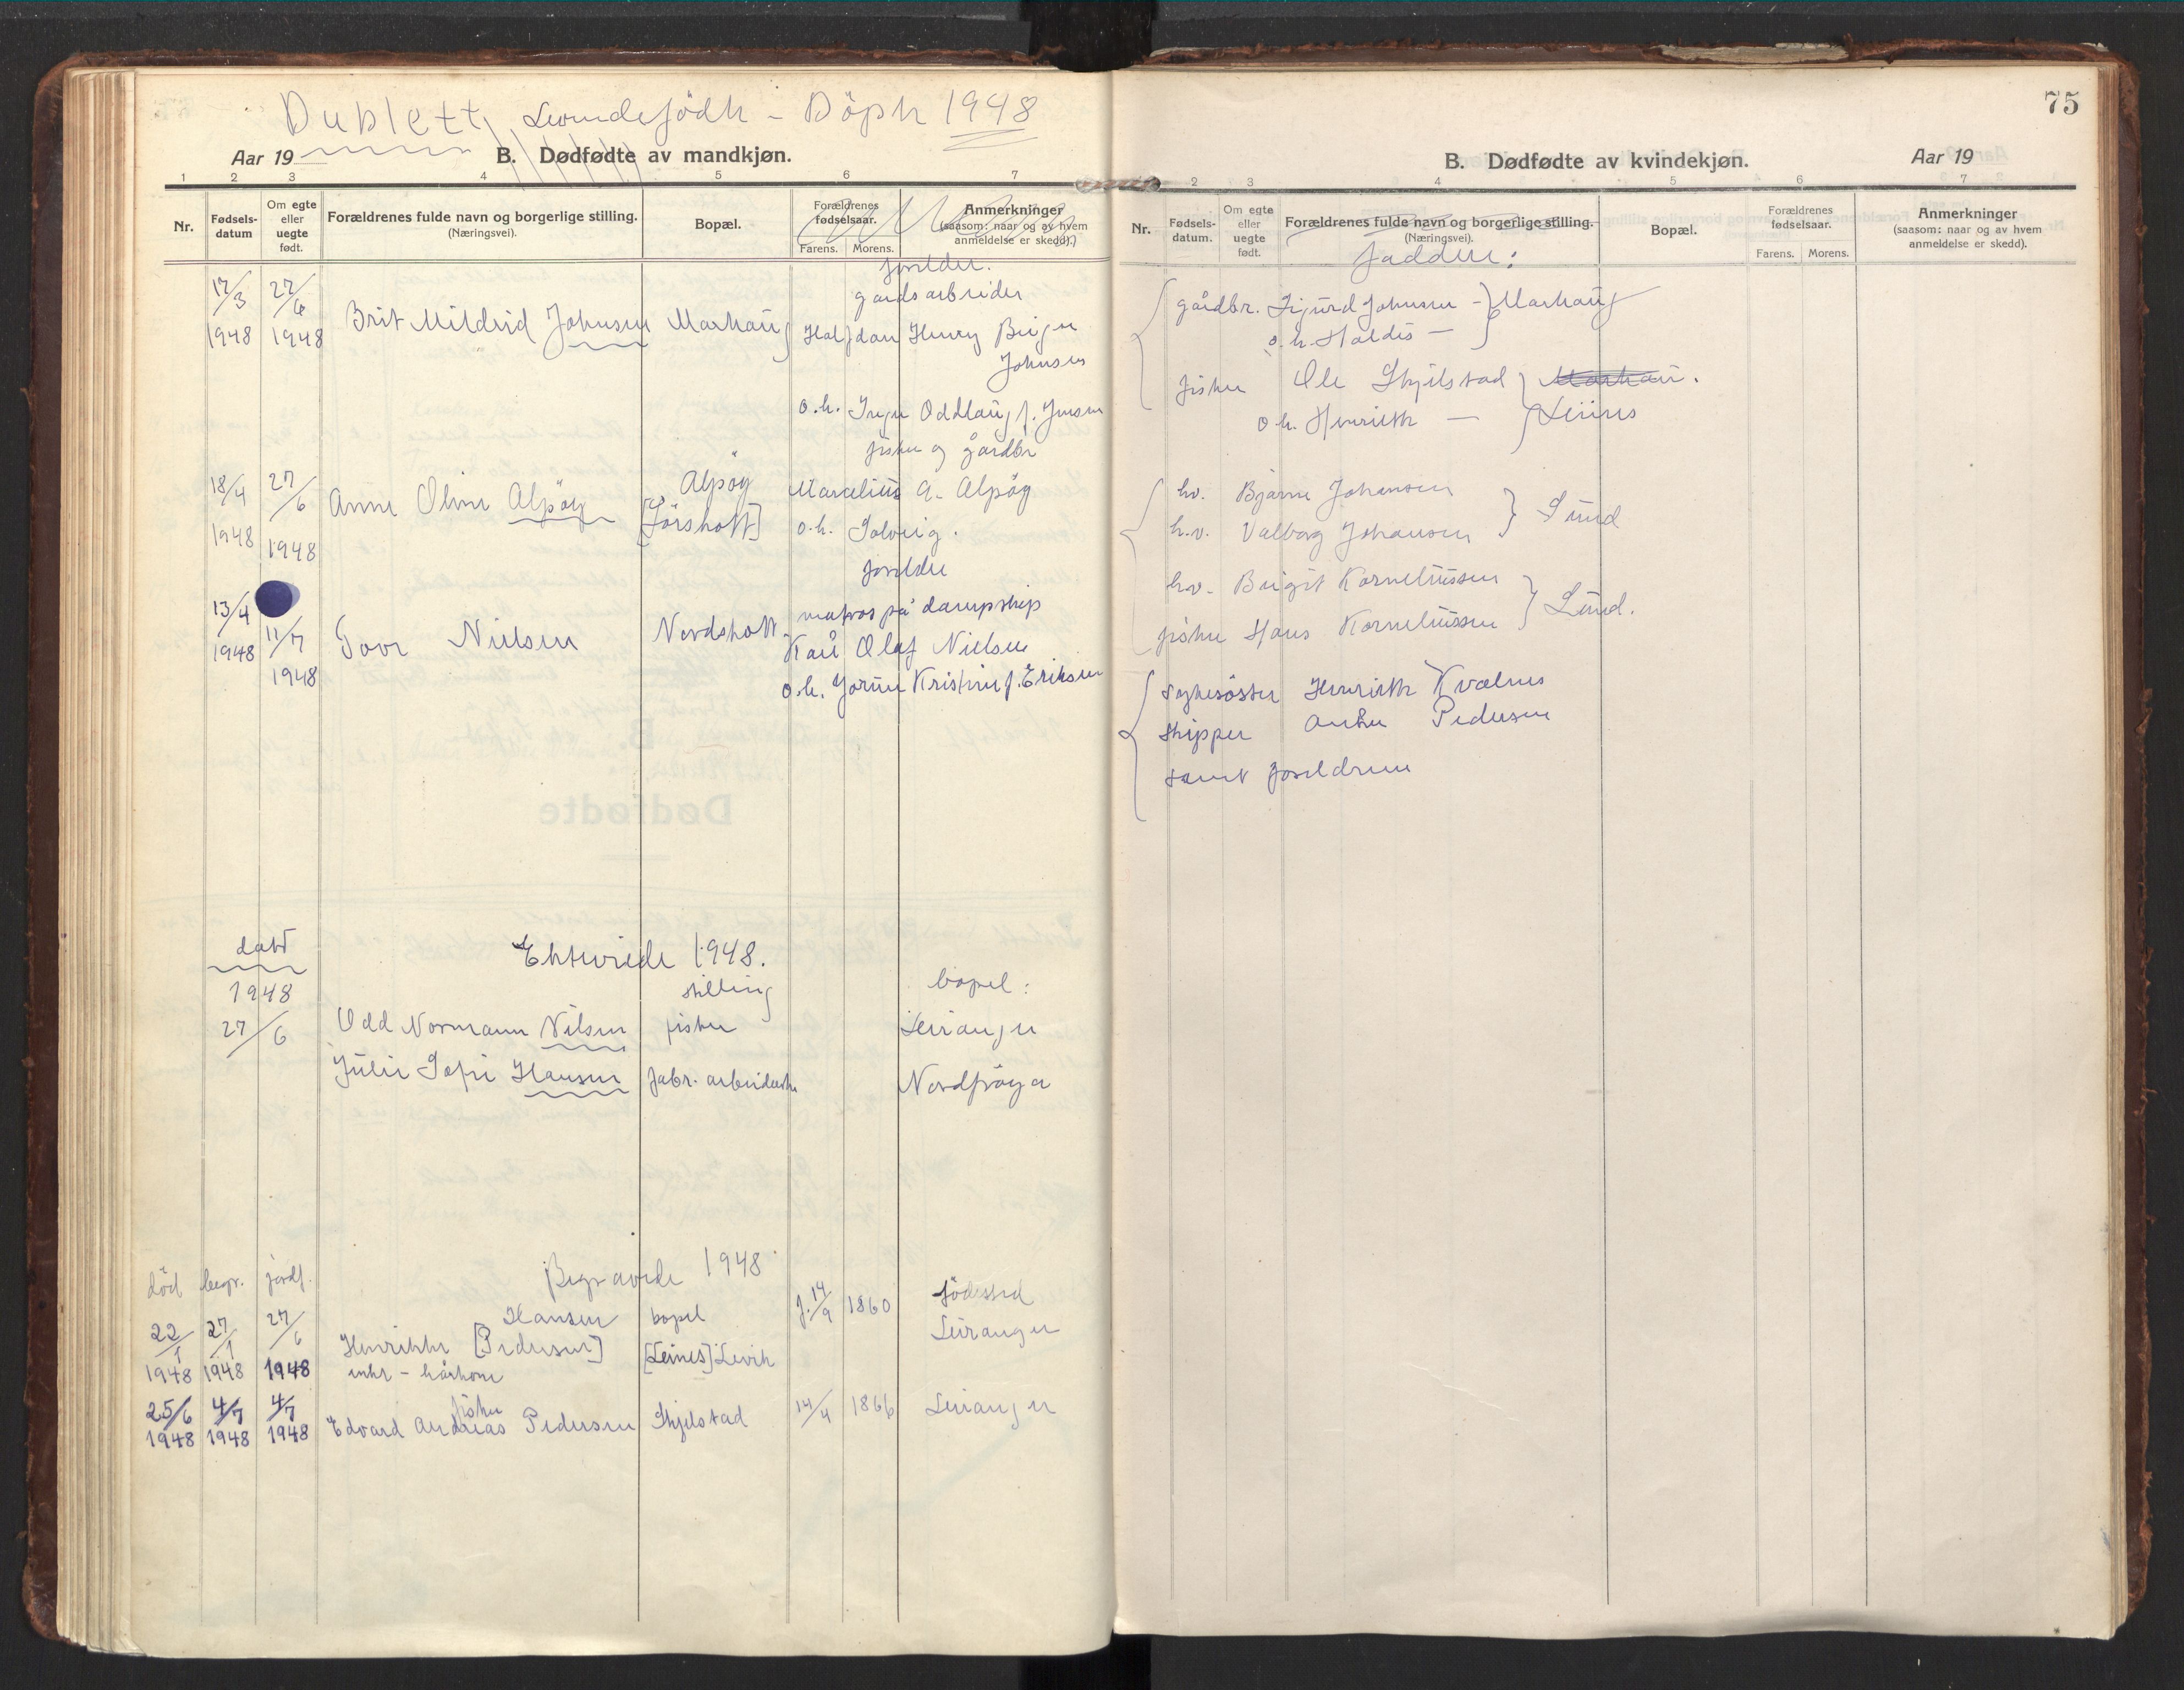 Dublett, Levendefödte - Döpte 1948
Aar 19
B. Dødfødte av mandkjøn.
1 2 3 4 5 6 7
Nr.
Fødsels-
datum
Om egte
eller
uegte
født.
Forældrenes fulde navn og borgerlige stilling.
(Næringsvei).
Bopæl.
Forældrenes
fødselsaar.
Farens. Morens.
Anmerkninger
(saasom: naar og av hvem
anmeldelse er skedd).
foreldre.
17/3 27/6 gårdsarbeider
1948 1948 Brit Mildrid Johnsen Marhaug Halfdan Henry Birger
Johnsen
o.h. Inger Oddlaug f. Jensen
fisker og gårdbr
18/4 27/6 Anne Oline Alpöy Alpöy Marcelius A. Alpöy
1948 1948 o.h. Solveig.
foreldre
13/4 11/7 matros på dampskip
1948 1948 Tove Nielsen Nordskott Kåre Olaf Nielsen
o.h. Jorun Kristine f. Eriksen
dato
Ekteviede 1948.
1948 stilling bopel:
27/6 Odd Normann Nilsen fisker Leiranger
Julie Sofie Hansen fabr. arbeiderske Nordfröya
Begravede 1948
död begr. jordf.
Hansen bopel f. 14/9 1860 födested
22/1 27/1 27/6 Henrikke [Pedersen] [Leines] Levik Leiranger
1948 1948 1948 enke - kårkone
25/6 4/7 4/7 fisker
1948 1948 1948 Edvard Andreas Pedersen Skjelstad 14/4 1866 Leiranger
75
B. Dødfødte av kvindekjøn.
Aar 19
2 3 4 5 6 7
Nr.
Fødsels-
datum.
Om egte
eller
uegte
født.
Forældrenes fulde navn og borgerlige stilling.
(Næringsvei).
Bopæl.
Forældrenes
fødselsaar.
Farens. Morens.
Anmerkninger
(saasom: naar og av hvem
anmeldelse er skedd).
Faddere:
gårdbr. Sigurd Johnsen - Marhaug
o.h. Haldis -
fisker Ole Skjelstad Marhau.
o.h. Henriette - Leines
hv. Bjarne Johansen
h.v. Valborg Johansen Lund
hv. Birgit Korneliussen
fisker Hans Korneliussen Lund.
sykesöster Henriette Kvalnes
skipper Anker Pedersen
samt foreldrene